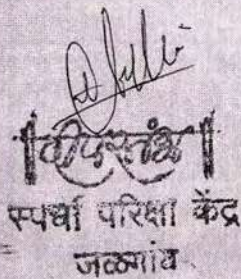 ॥ दीपस्तंभ ॥
स्पर्धा परिक्षा केंद्र
जळगांव